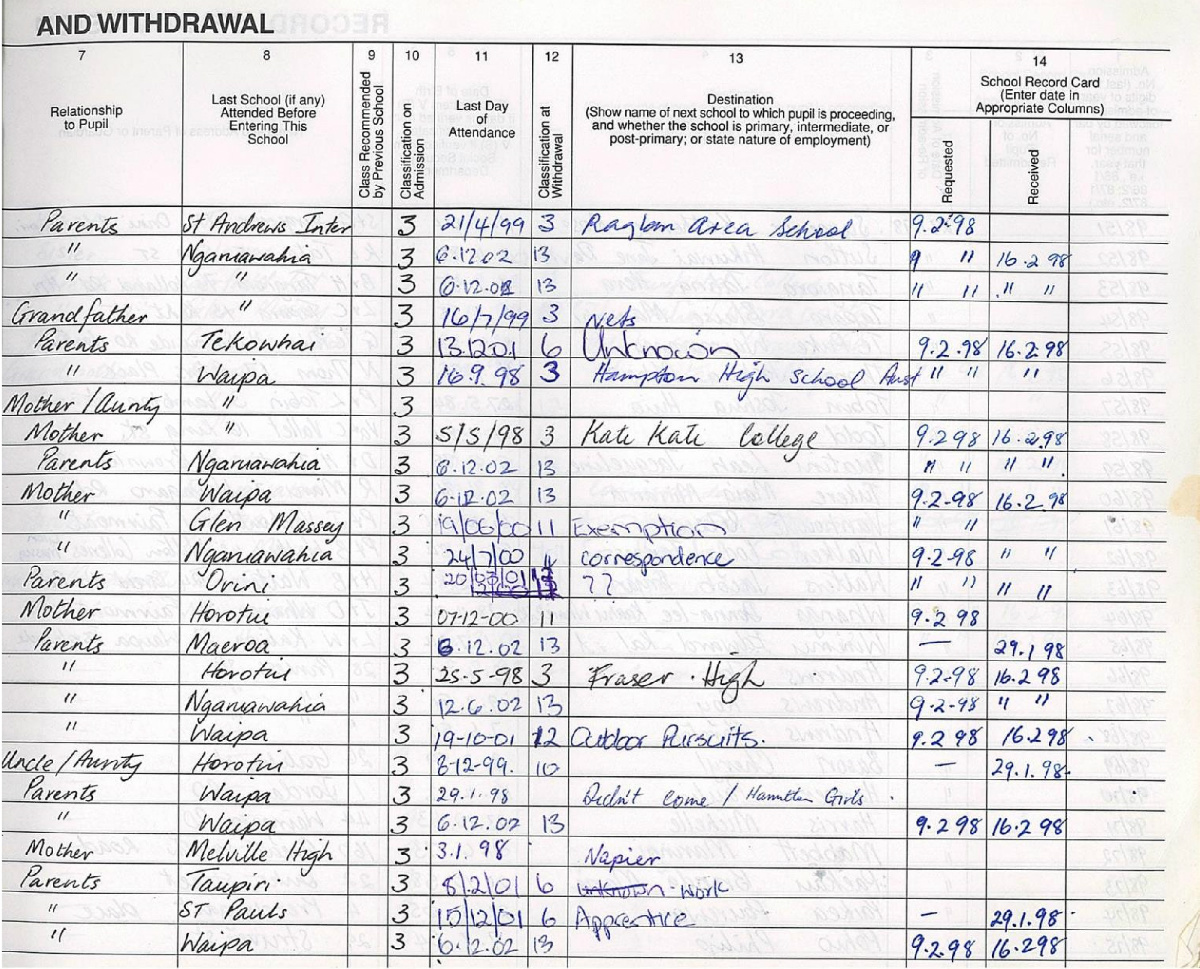 AND WITHDRAWAL
7 8 9 10 11 12 13 14
Relationship to Pupil
Last School (if any) Attended Before Entering This School
Class Recommended by Previous School
Classification on Admission
Last Day of Attendance
Classification at Withdrawal
Destination
(Show name of next school to which pupil is proceeding, and whether the school is primary, intermediate, or post-primary; or state nature of employment)
School Record Card (Enter date in Appropriate Columns)
Requested Received
Parents St Andrews Inter 3 21/4/99 3 Raglan Area School 9.2.98
" Ngaruawahia 3 6.12.02 13 " " 16.2.98
" " 3 6.12.02 13 " " " "
Grandfather " 3 16/7/99 3 Nets
Parents Tekowhai 3 13.12.01 6 Unknown 9.2.98 16.2.98
" Waipa 3 16.9.98 3 Hampton High School Aust " " "
Mother/Aunty " 3
Mother " 3 5/5/98 3 Kati Kati College 9.2.98 16.2.98
Parents Ngaruawahia 3 6.12.02 13 " " " "
Mother Waipa 3 6.12.02 13 9.2.98 16.2.98
" Glen Massey 3 19/06/00 11 Exemption " "
" Ngaruawahia 3 24/7/00 11 correspondence 9.2.98 " "
Parents Orini 3 20/03/01 12 ?? " " " "
Mother Horotiu 3 07-12-00 11 9.2.98
Parents Maeroa 3 6.12.02 13 — 29.1.98
" Horotiu 3 25.5-98 3 Fraser High 9.2.98 16.2.98
" Ngaruawahia 3 12.6.02 13 9.2.98 " "
" Waipa 3 19-10-01 12 Outdoor Pursuits. 9.2.98 16.2.98
Uncle/Aunty Horotiu 3 8-12-99. 10 — 29.1.98
Parents Waipa 3 29.1.98 Didn't come / Hamilton Girls
" Waipa 3 6.12.02 13 9.2.98 16.2.98
Mother Melville High 3 3.1.98 Napier
Parents Taupiri 3 8/2/01 6 unknown - Work
" ST Pauls 3 15/12/01 6 Apprentice — 29.1.98
" Waipa 3 6.12.02 13 9.2.98 16.2.98